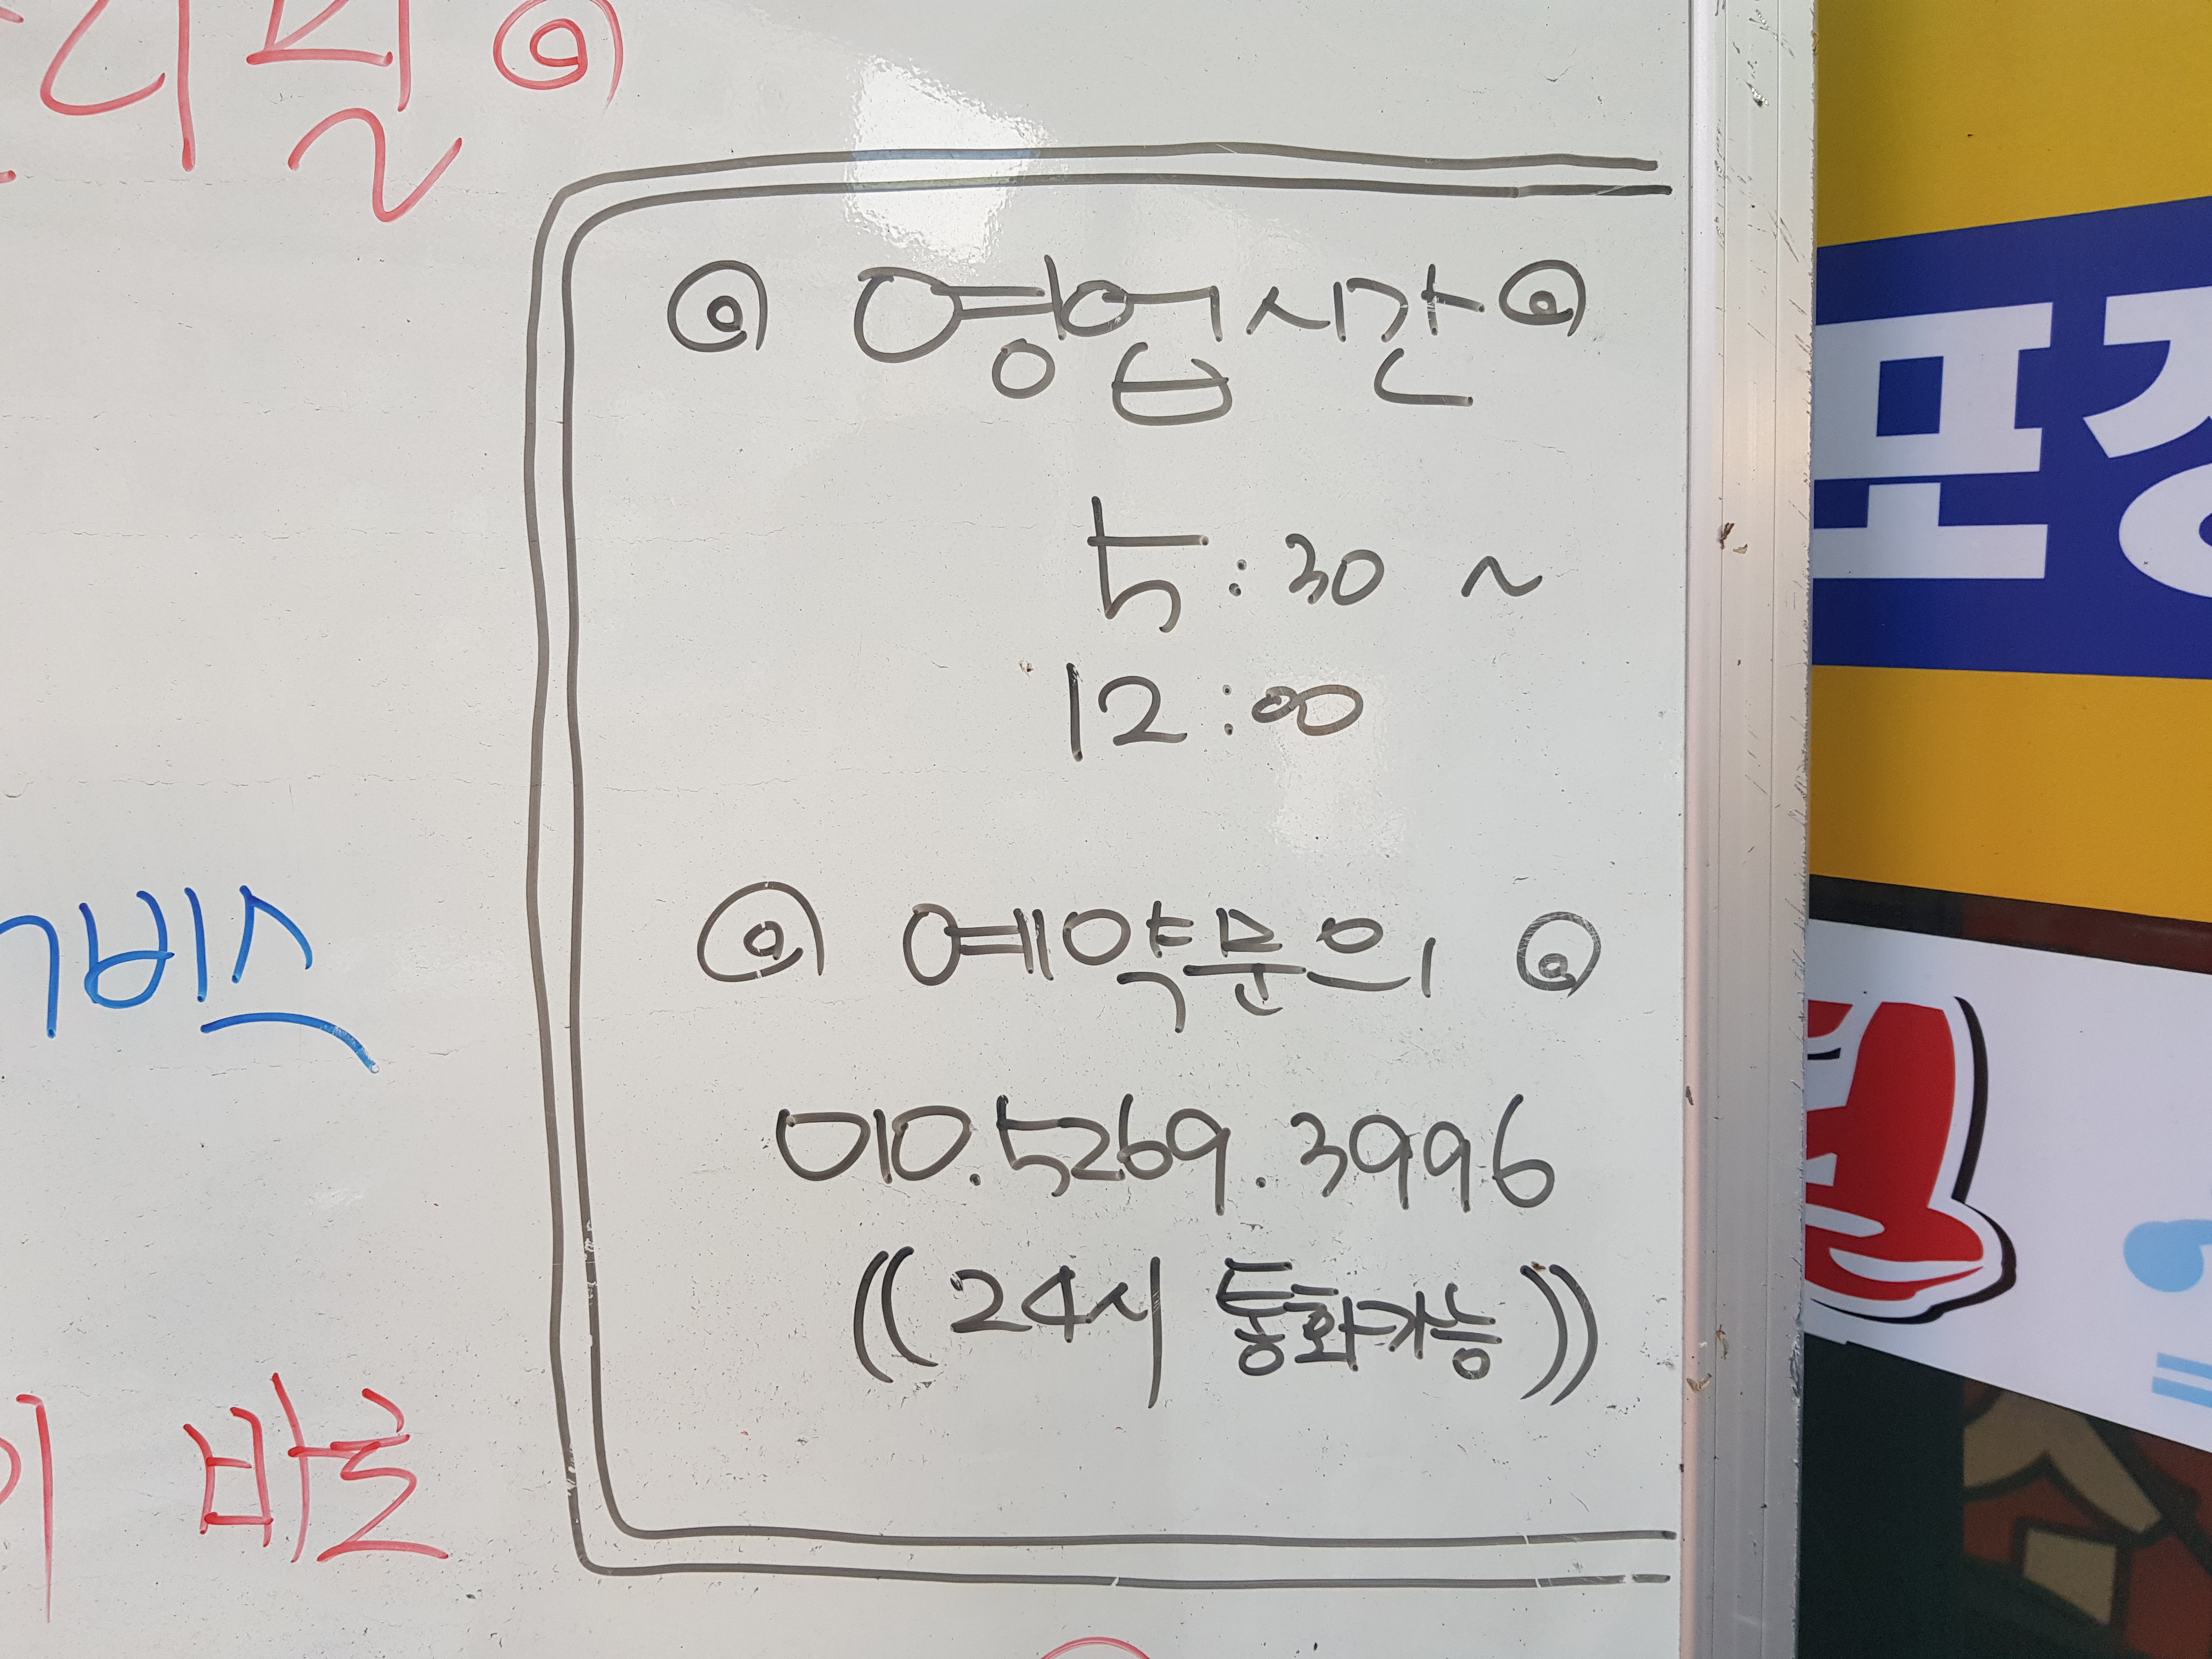 ◎ 영업시간 ◎
5:30 ~
12:00
◎ 예약문의 ◎
010.5269.3996
((24시 통화가능))
비스
바로
포장